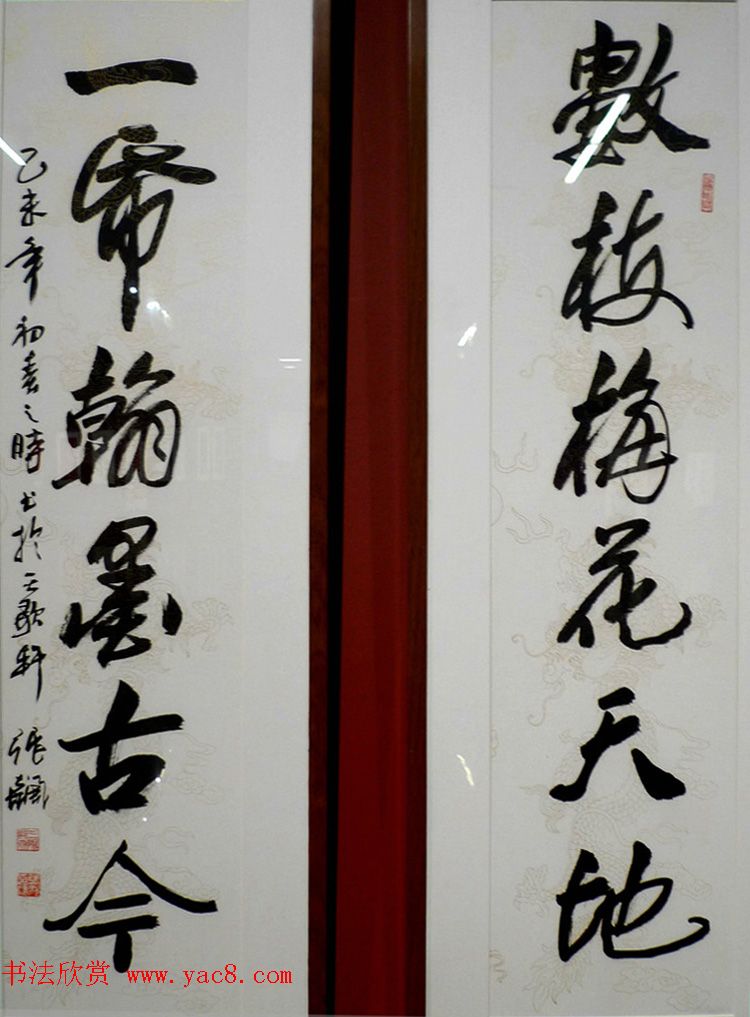 數枝梅花天地
一 翰墨古今
乙未年初春之時书於天歌軒 張飆
书法欣赏 www.yac8.com